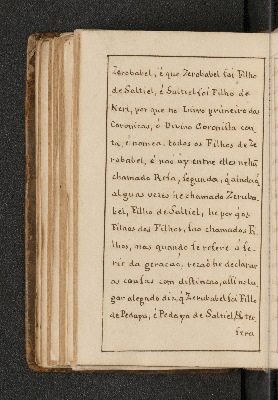 Zerobabel, é que Zerobabel foi Filho
de Saltiel, é Saltiel foi Filho de
Neri, por que no Livro primeiro das
Coronicas, o Divino Coronista con
ta, é nomea todos os Filhos de Ze
robabel, é nao áy entre elles nehũ
chamado Resa, segunda, q̃ aindaq̃
alguas vezes he chamado Zeruba
bel, Filho de Saltiel, he por q̃ os
Filhos dos Filhos, sao chamados Fi
lhos, mas quando se refere á se
rie da geracaó, rezaó he declarar
as causas com distincao, allí no lu
gar alegado diz q̃ Zerubabel foi Filho
de Pedaya, é Pedaya de Saltiel,